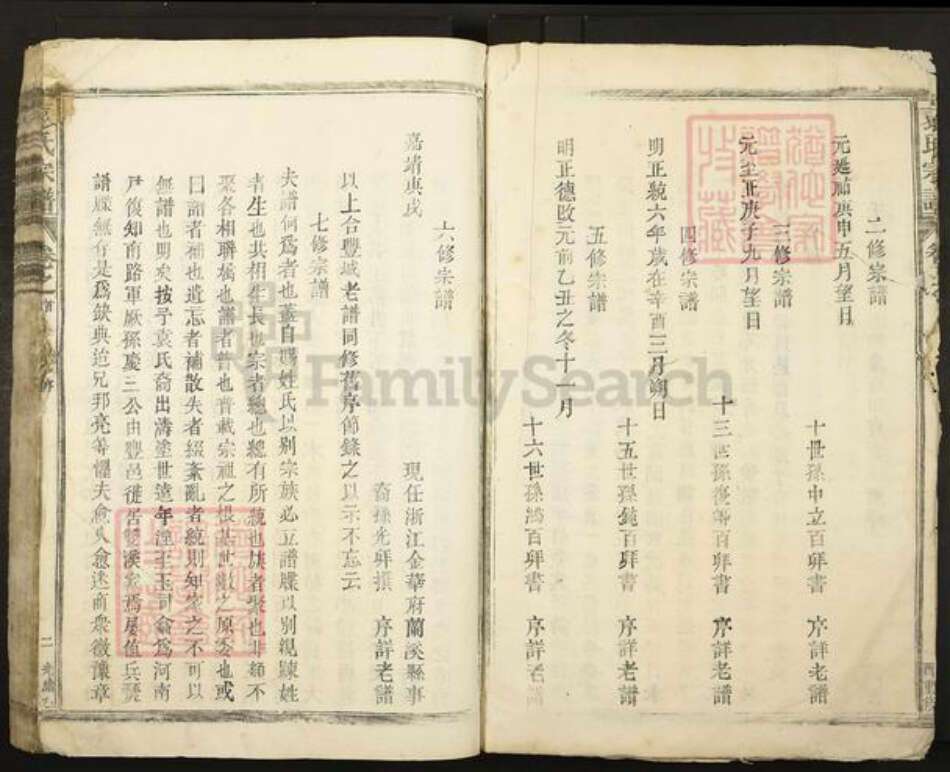 二修宗譜
元延祐庚申五月望日
十世孫中立百拜書 序詳老譜
三修宗譜
元至正庚子九月望日
十三世孫復等百拜書 序詳老譜
四修宗譜
明正統六年歲在辛酉三月朔日
十五世孫純百拜書 序詳老譜
五修宗譜
明正德改元前乙丑之冬十一月
十六世孫鴻百拜書 序詳老譜
六修宗譜
嘉靖庚戌
現任浙江金華府蘭溪縣事
裔孫光拜撰 序詳老譜
以上合豐城老譜同修舊序節錄之以示不忘云
七修宗譜
夫譜何為者也蓋自賜姓氏以別宗族必立譜牒以別親踈姓
者生也共相生長也宗者總也總有所統也族者聚也非類不
聚各相聯構也譜者普也普載宗祖之根基世數之原委也或
曰譜者補也遺忘者補散失者綴紊亂者統則知家之不可以
無譜也明矣按予袁氏裔出濤塗世遠年湮至玉司俞為河南
尹復知南路軍厥孫慶三公由豐邑徙居雙溪家焉屢值兵燹
譜牒無存是為缺典迨兄邦亮等懼夫愈久愈迷商眾徵豫章
袁氏宗譜
FamilySearch